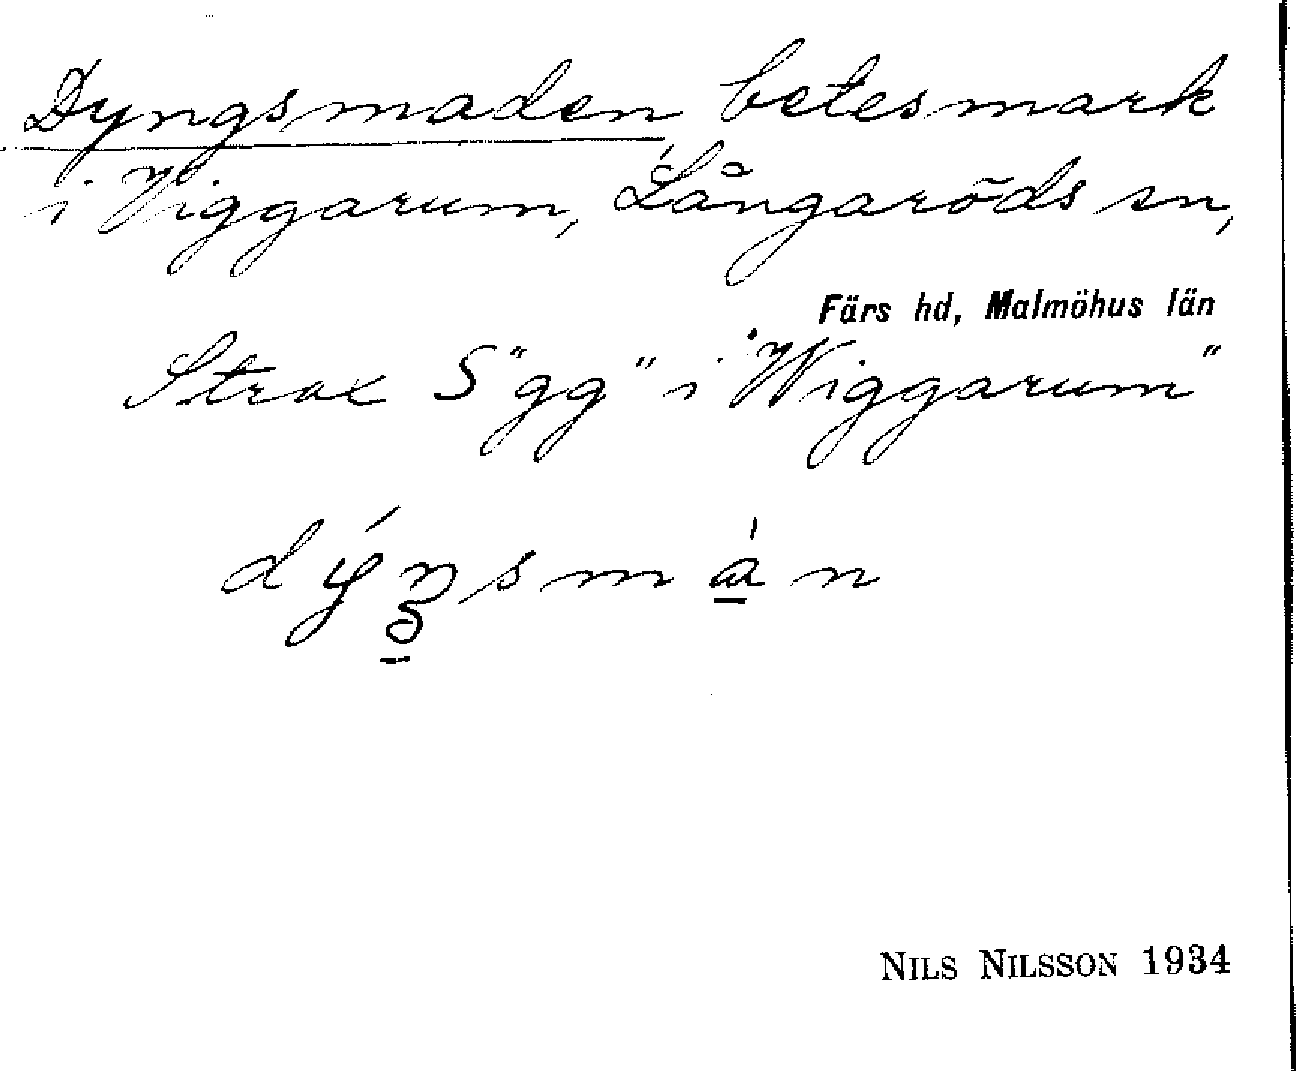 Dyngsmaden, betesmark
i Viggarum, Långaröds sn,
Färs hd, Malmöhus län
Strax S "gg" i "Wiggarum"
NILS NILSSON 1934